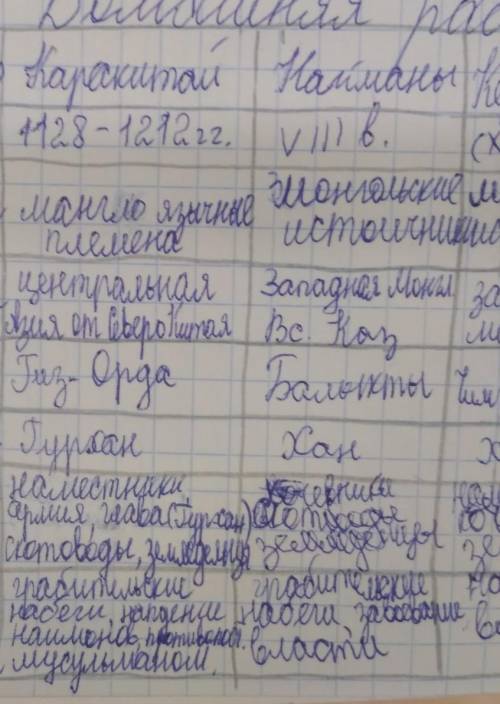 Домашняя ра
Каракитай Найманы К
1128-1212 гг. VIII в. (X
мангло язычные племена
Монгольские источники
центральная Азия от Сверо Китая
Западная Монг Вс. Каз
за
Гиз-Орда Балыкты
Гурхан Хан Х
наместники, армия, глава (Гурхан) скотоводы, земледельцы
кочевники скотоводы земледельцы
грабительские набеги, нападение наиманов, мусульманом.
грабительские набеги, завоевание власти